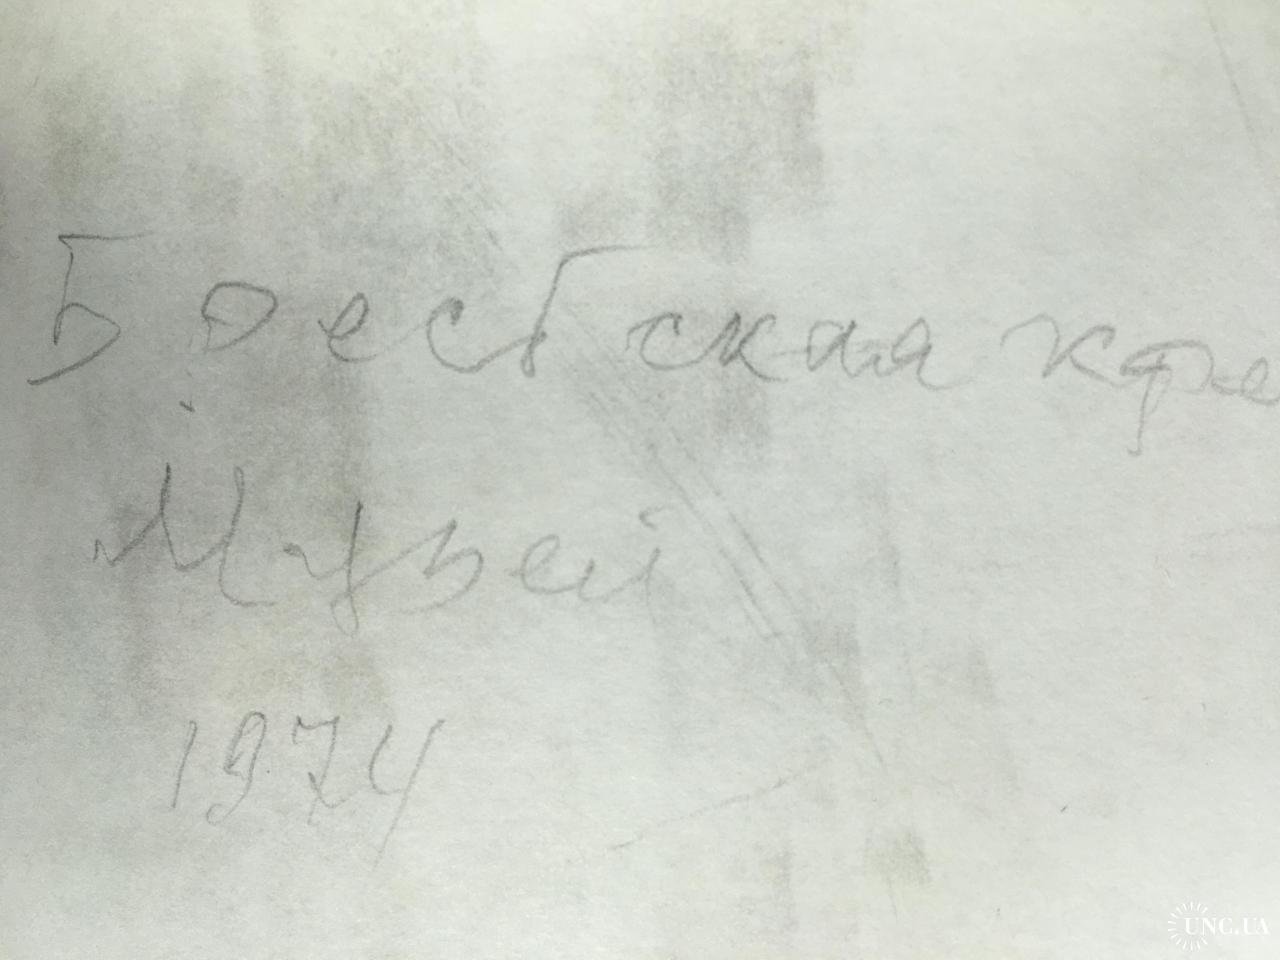 Брестская кре
Музей
1974
UNC.UA